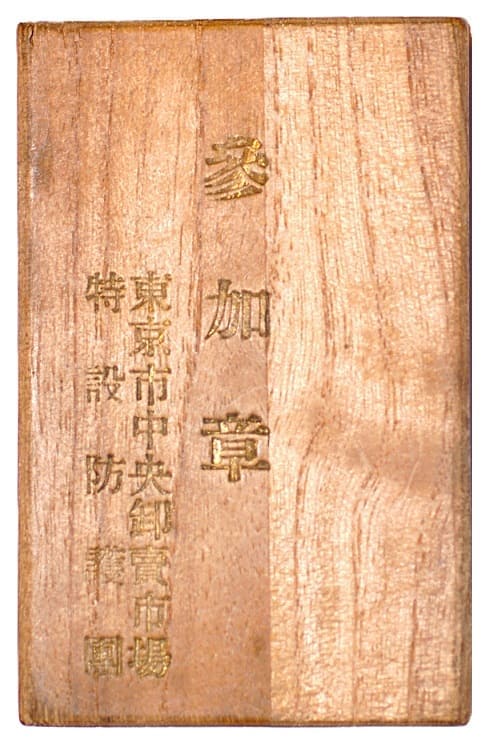 参加章
東京市中央卸賣市場
特設防護團